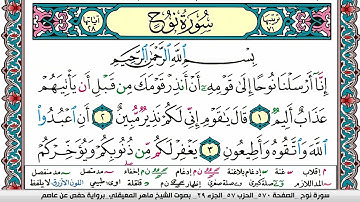 آياتها ٢٨
سُورَةُ نُوحٍ
ترتيبها ٧١
بِسْمِ اللَّهِ الرَّحْمَٰنِ الرَّحِيمِ
إِنَّآ أَرْسَلْنَا نُوحًا إِلَىٰ قَوْمِهِۦٓ أَنْ أَنذِرْ قَوْمَكَ مِن قَبْلِ أَن يَأْتِيَهُمْ
عَذَابٌ أَلِيمٌ ١ قَالَ يَٰقَوْمِ إِنِّى لَكُمْ نَذِيرٌ مُّبِينٌ ٢ أَنِ ٱعْبُدُوا۟
ٱللَّهَ وَٱتَّقُوهُ وَأَطِيعُونِ ٣ يَغْفِرْ لَكُم مِّن ذُنُوبِكُمْ وَيُؤَخِّرْكُمْ
سورة نوح - الصفحة ٥٧٠ - الحزب ٥٧ - الجزء ٢٩ - بصوت الشيخ ماهر المعيقلي برواية حفص عن عاصم